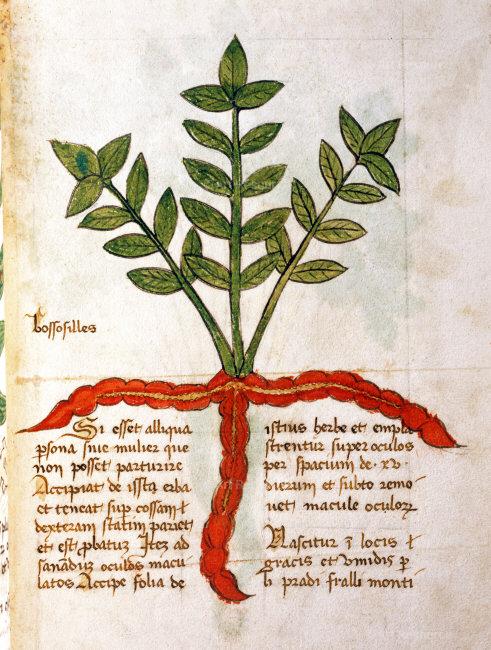 bossofilles
Si esset alliqua
psona siue mulier que
non posset parturire
Accipiat de ista erba
et teneat sup cossam ł
dexteram statim pariet
et est pbatuz Itez ad
sananduz oculos macu
latos Accipe folia de
istius herbe et empla
strentur super oculos
per spacium de · xv ·
dierum et subto remo
uet macule oculorꝝ
Nascitur ī locis ł
gracis et vmidis p
li pradi fralli monti